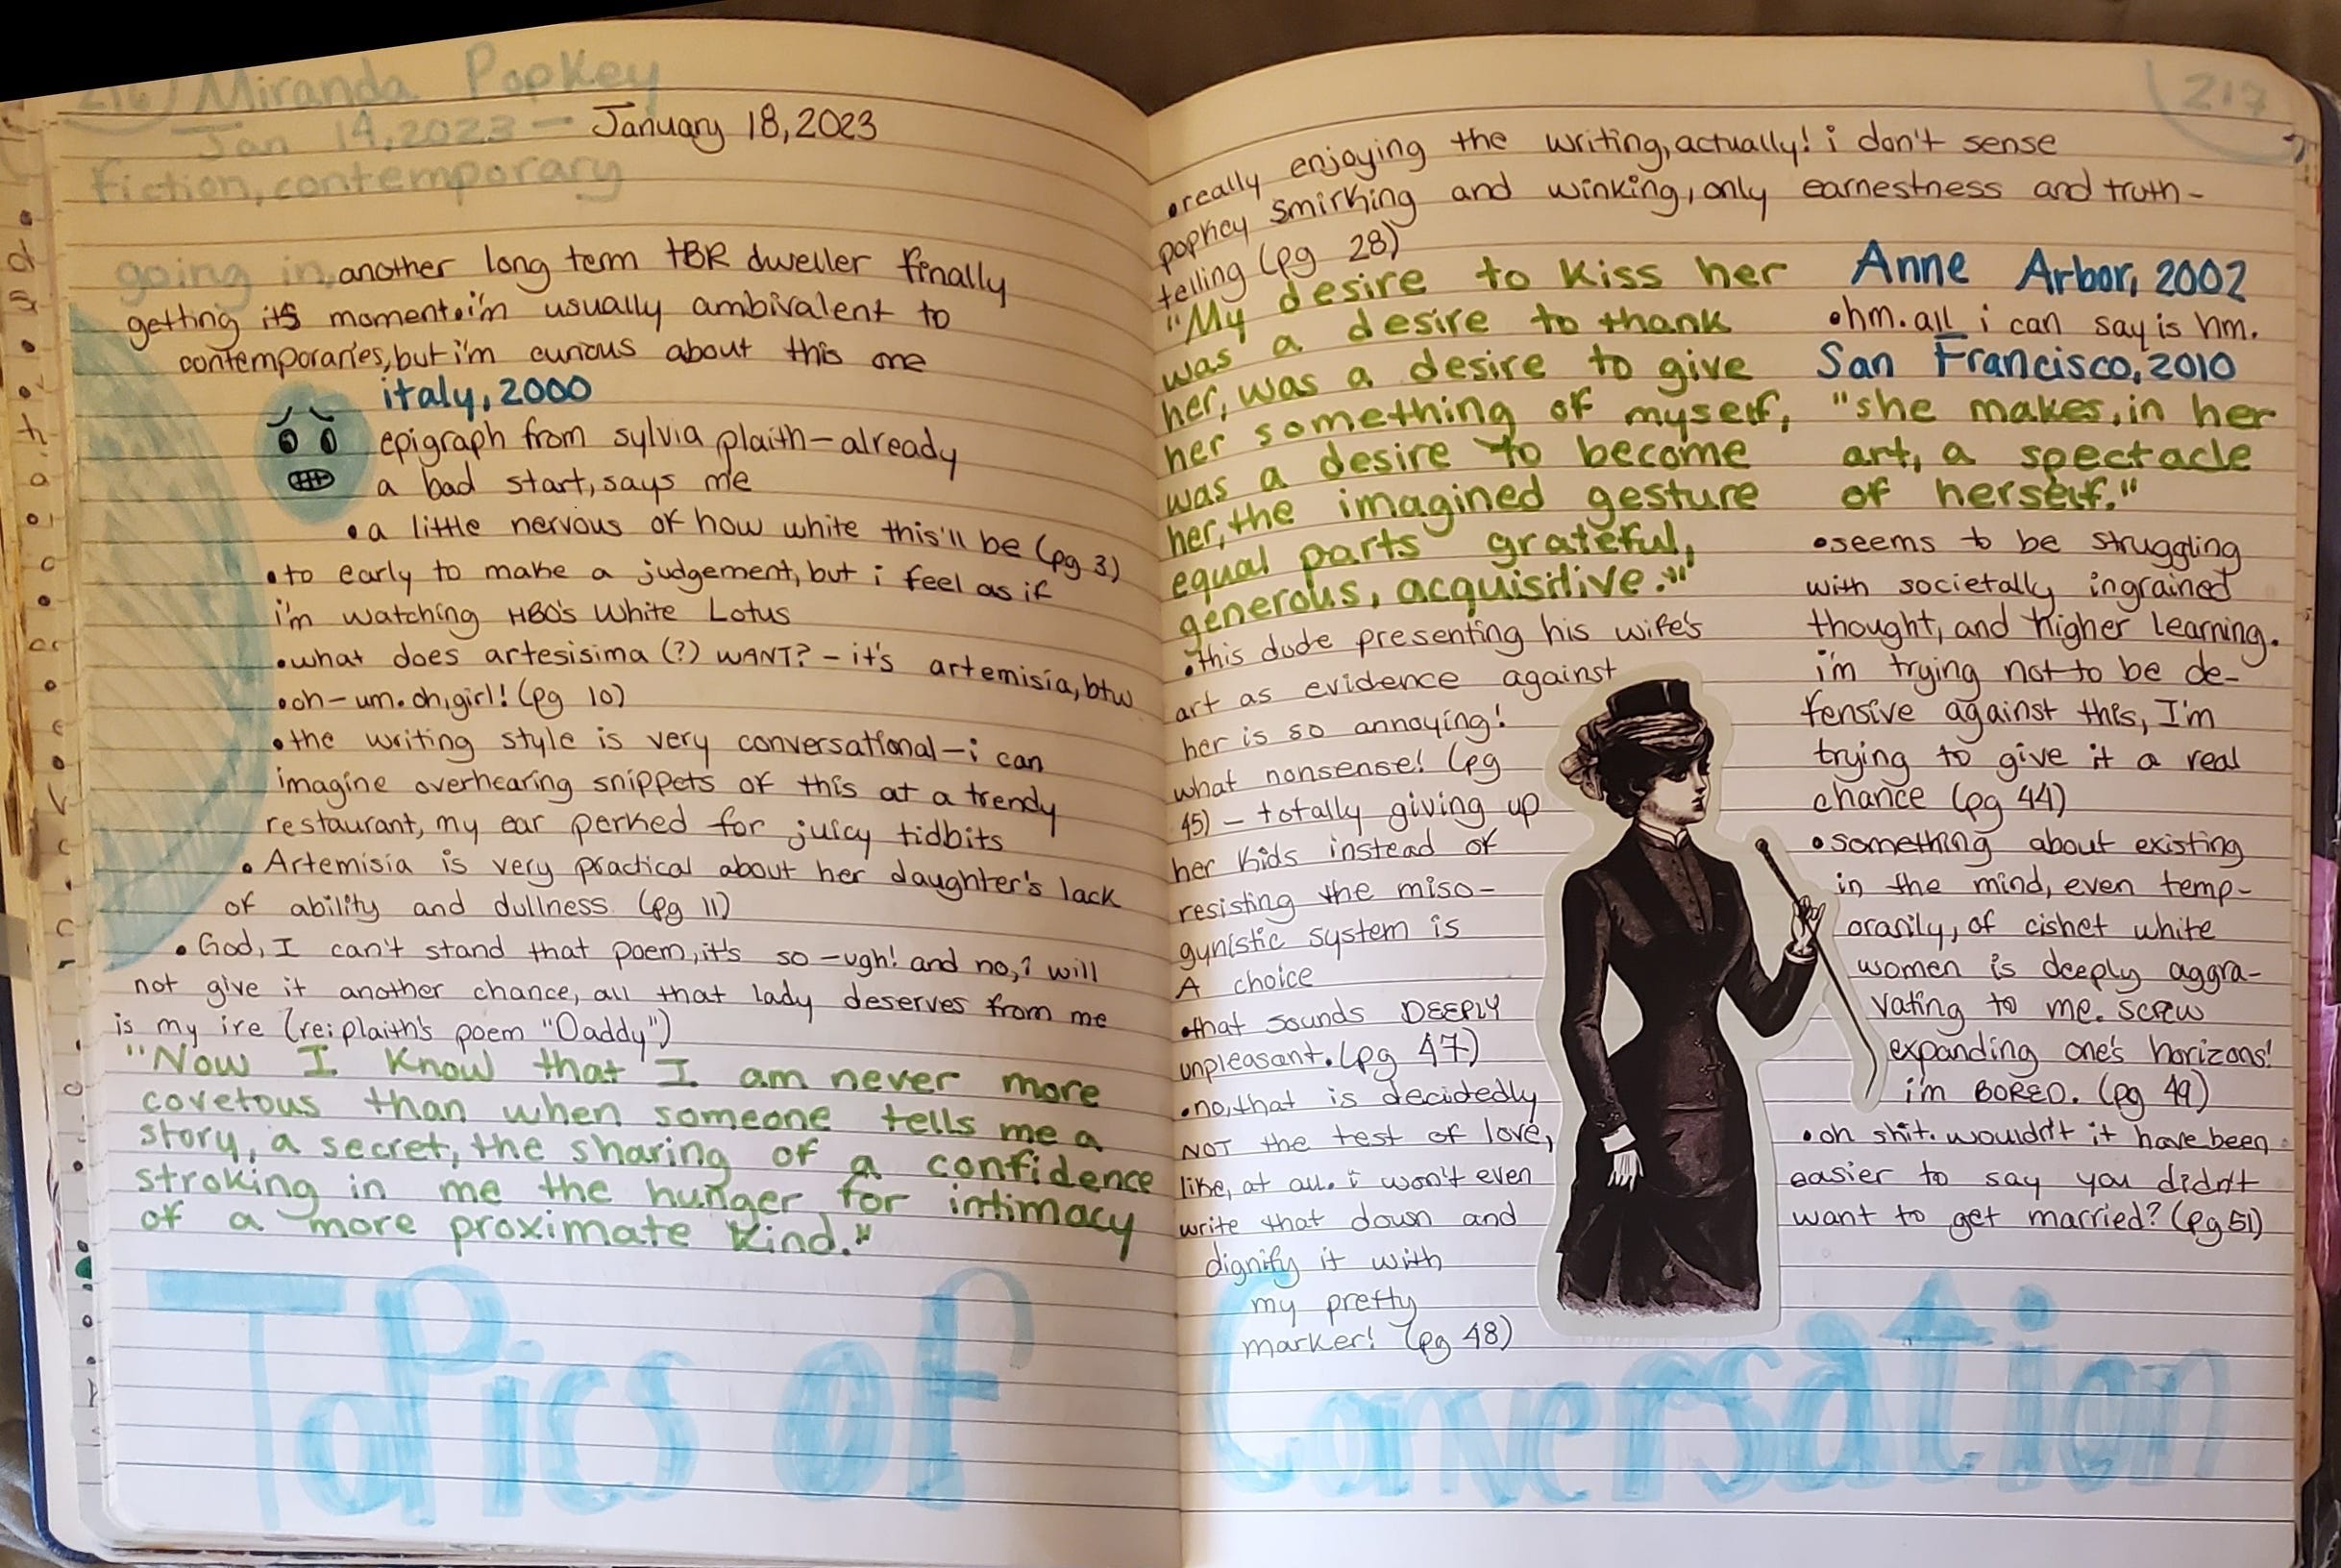 216) Miranda Popkey
Jan 14, 2023 — January 18, 2023
Fiction, contemporary
going in, another long term tBR dweller finally
getting its moment. i'm usually ambivalent to
contemporaries, but i'm curious about this one
italy, 2000
epigraph from sylvia plaith—already
a bad start, says me
•a little nervous of how white this'll be (pg 3)
•to early to make a judgement, but i feel as if
i'm watching HBO's White Lotus
•what does artesisima (?) WANT? - it's artemisia, btw
•oh-um. oh, girl! (pg 10)
•the writing style is very conversational—i can
imagine overhearing snippets of this at a trendy
restaurant, my ear perked for juicy tidbits
• Artemisia is very practical about her daughter's lack
of ability and dullness (pg 11)
• God, I can't stand that poem, it's so -ugh! and no, i will
not give it another chance, all that lady deserves from me
is my ire (re: plaith's poem "Daddy")
"Now I know that I am never more
covetous than when someone tells me a
story, a secret, the sharing of a confidence
stroking in me the hunger for intimacy
of a more proximate kind."
Topics of
217
•really enjoying the writing, actually! i don't sense
popkey smirking and winking, only earnestness and truth-
telling (pg 28)
"My desire to kiss her
was a desire to thank
her, was a desire to give
her something of myself,
was a desire to become
her, the imagined gesture
equal parts grateful,
generous, acquisitive."
•this dude presenting his wife's
art as evidence against
her is so annoying!
what nonsense! (pg
45) - totally giving up
her kids instead of
resisting the miso-
gynistic system is
A choice
•that sounds DEEPLY
unpleasant. (pg 47)
•no, that is decidedly
NOT the test of love,
like, at all. i won't even
write that down and
dignify it with
my pretty
marker! (pg 48)
Anne Arbor, 2002
•hm. all i can say is hm.
San Francisco, 2010
"she makes, in her
art, a spectacle
of herself."
•seems to be struggling
with societally ingrained
thought, and higher learning.
i'm trying not to be de-
fensive against this, I'm
trying to give it a real
chance (pg 44)
•something about existing
in the mind, even temp-
orarily, of cishet white
women is deeply aggra-
vating to me. screw
expanding one's horizons!
i'm BORED. (pg 49)
•oh shit. wouldn't it have been
easier to say you didn't
want to get married? (pg 51)
Conversation